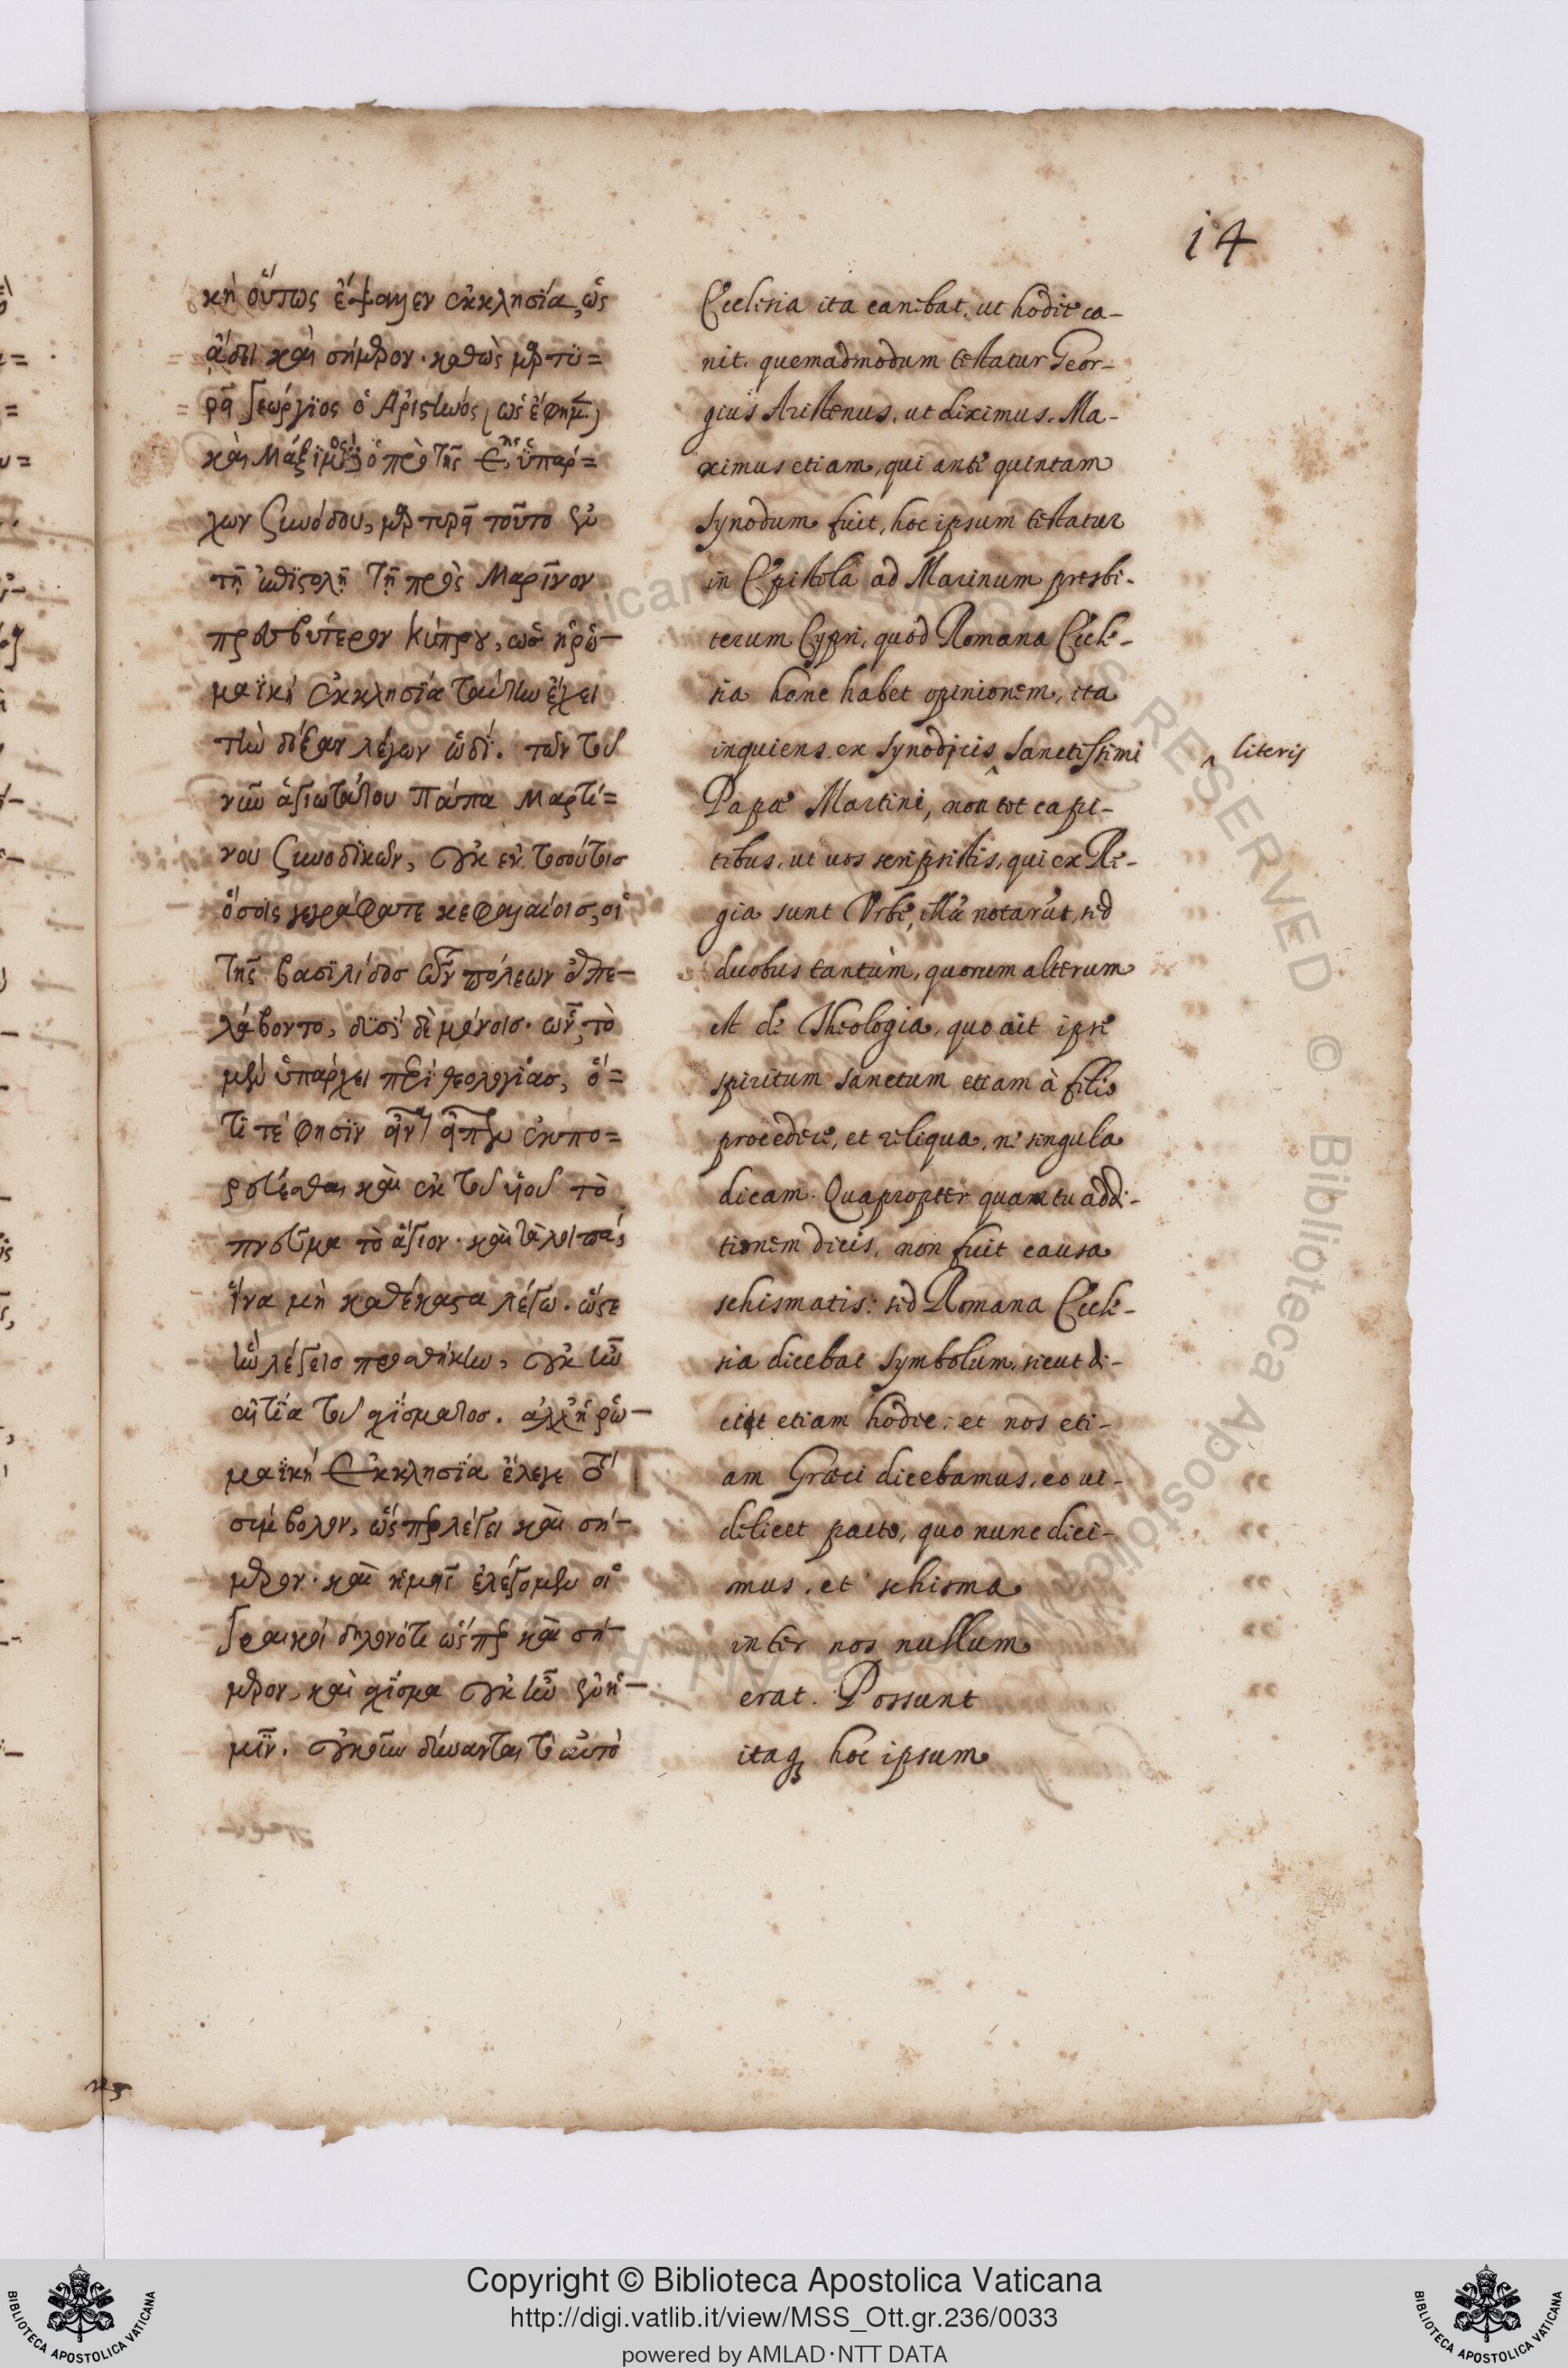 14
κὴ οὕτως ἔψαλλεν ἐκκλησία, ὡς
ᾄδει καὶ σήμερον· καθὼς μαρτυ=
ρεῖ Γεώργιος ὁ Ἀριστινός, ὡς ἔφημεν
καὶ Μάξιμος ὁ πρὸ τῆς ε ὑπάρ=
χων ζυνόδου, μαρτυρεῖ τοῦτο ξὺ
τῇ ἐπιστολῇ τῇ πρὸς Μαρῖνον
πρεσβύτερον Κύπρου, ὡσ ἡ ῥω-
μαϊκὴ ἐκκλησία ταύτην ἔχει
τὴν δόξαν λέγων ὧδι. τῶν τοῦ
νῦν ἁγιωτάτου Πάπα Μαρτί=
νου ζυνοδικῶν, οὐκ ἐν τοσούτοισ
ὅσοις γεγράφατε κεφαλαίοισ, οἱ
τῆς βασιλίδοσ τῶν πόλεων ἐπε-
λάβοντο, δυσὶ δὲ μόνοισ. ὧν, τὸ
μὲν ὑπάρχει περὶ θεολογίασ, ὅ=
τί τέ φησὶν ἐκπο=
ρεύεσθαι καὶ ἐκ τοῦ υἱοῦ τὸ
πνεῦμα τὸ ἅγιον· καὶ τὰ λοιπὰ,
ἵνα μὴ καθέκαστα λέγω. ὥστε
ἣν λέγεισ προσθήκην, οὐκ ἦν
αἰτία τοῦ σχίσματοσ. ἀλλ' ἡ ῥω-
μαϊκὴ ἐκκλησία ἔλεγε τὸ
σύμβολον, ὥσπερ λέγει καὶ σή-
μερον· καὶ ἡμεῖς ἐλέγομεν οἱ
Γραικοὶ δηλονότι ὥσπερ καὶ σή-
μερον, καὶ σχίσμα οὐκ ἦν ξὺ ἡ-
μῖν. οὐκοῦν δύνανται τὸ αὐτὸ
Ecclesia ita canebat, ut hodie ca-
nit. quemadmodum testatur Geor-
gius Aristenus, ut diximus. Ma-
ximus etiam, qui ante quintam
synodum fuit, hoc ipsum testatur
in Epistola ad Marinum presbi-
terum Cypri, quod Romana Eccle-
sia hanc habet opinionem, ita
inquiens. ex synodicis ^ sanctissimi
^ literis
Papæ Martini, non tot capi-
tibus, ut uos scripsistis, qui ex Re-
gia sunt Vrbe, illū notarūt, sed
duobus tantum, quorum alterum
est de Theologia, quo ait ipse
spiritum sanctum etiam à filio
procedere, et reliqua, ne singula
dicam. Quapropter quam tu addi-
tionem dicis, non fuit causa
schismatis: sed Romana Eccle-
sia dicebat symbolum, sicut di-
cit etiam hodie: et nos eti-
am Græci dicebamus, eo ui-
delicet pacto, quo nunc dici-
mus, et schisma
inter nos nullum
erat. Possunt
itaq; hoc ipsum
Copyright © Biblioteca Apostolica Vaticana
http://digi.vatlib.it/view/MSS_Ott.gr.236/0033
powered by AMLAD·NTT DATA